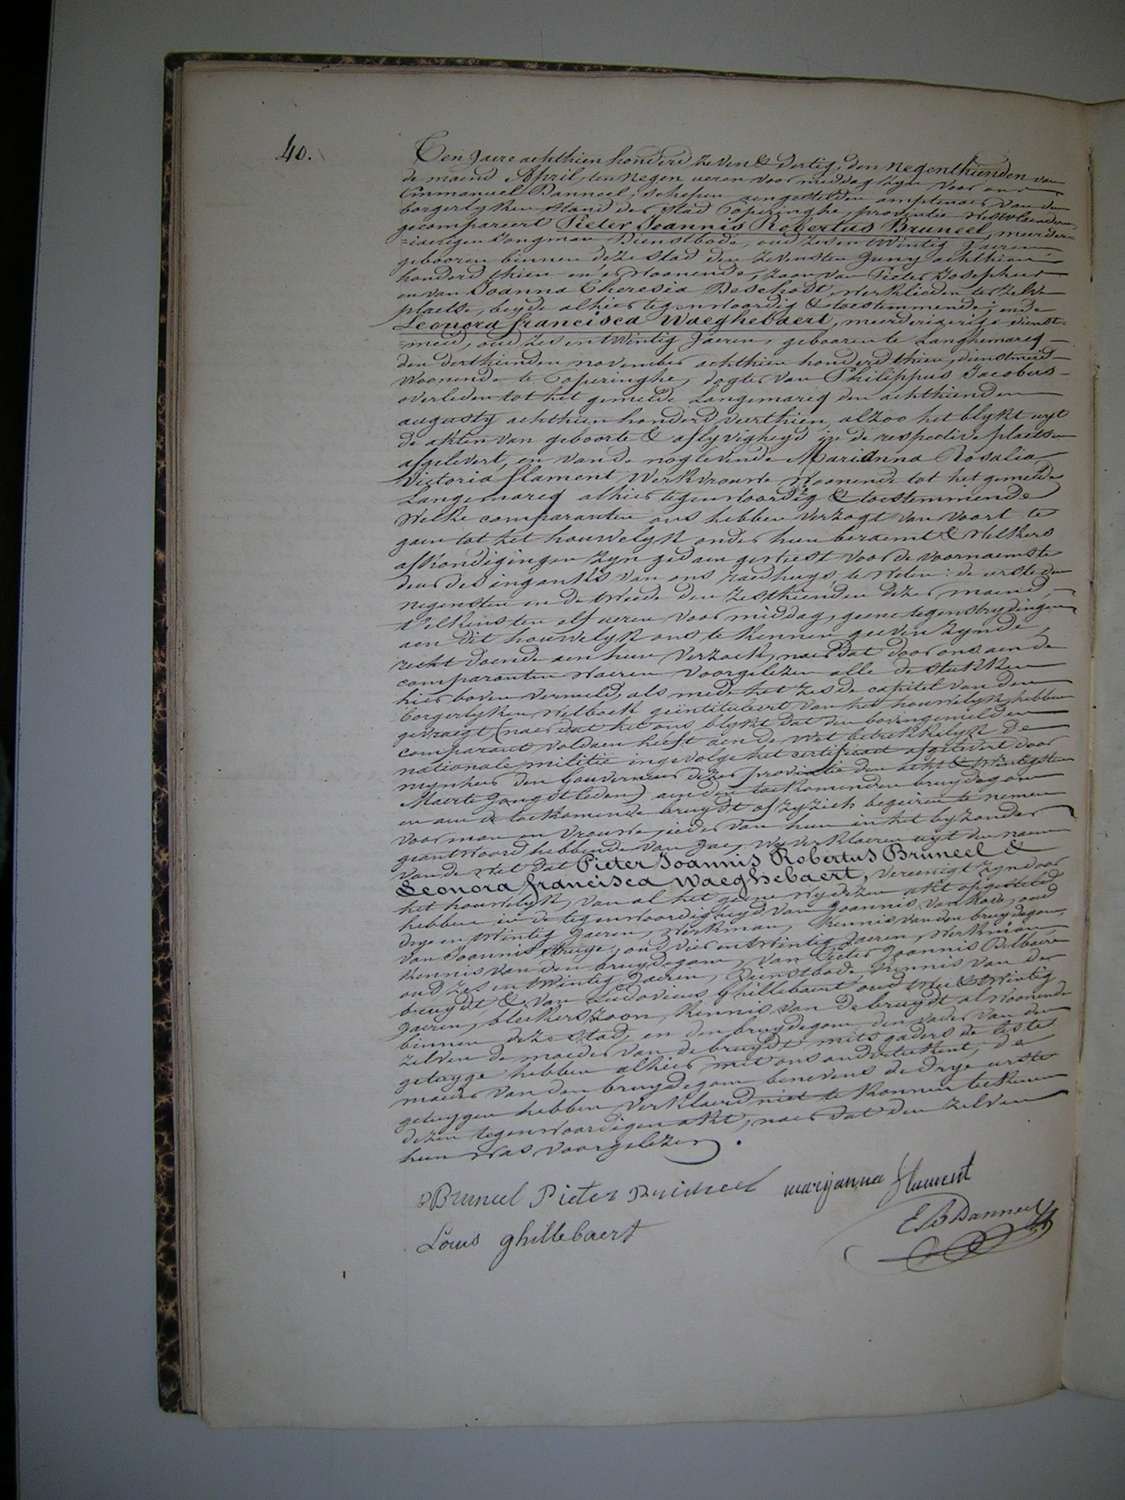 40.
Ten Jaere achthien honderd zeven & dertig, den negenthienden van
de maend April, ten negen ueren voor middag zyn voor ons
Emmanuel Danneel, schepen aengestelden amptenaer van den
borgerlyken stand der stad Poperinghe, provincie Westvlaenderen
gecompareert Pieter Joannis Robertus Bruneel, meerder-
jaerigen Jongman Dienstbode, oud zes en twintig Jaeren
gebooren binnen deze stad den zevensten Juny achthien
honderd thien en er woonende, zoon van Pieter Josephus
en van Joanna Theresia Deschodt, werklieden ter zelve
plaetse, beyde alhier tegenwoordig & toestemmende; ende
Leonora francisca Waeghebaert, meerderjaerige dienst-
meid, oud zes en twintig Jaeren, gebooren te Langhemarcq
den derthienden november achthien honderd thien, dienstmeid
woonende te Poperinghe, dogter van Philippus Jacobus
overleden tot het gemeente Langemarcq den achthienden
augusty achthien honderd veerthien, alzoo het blykt uyt
de akten van geboorte & aflyvigheyd in de respective plaetsen
afgelevert, en van de nog levende Marianna Rosalia
Victoria flament, Werkvrouwe woonende tot het gemeente
Langemarcq alhier tegenwoordig & toestemmende
Welke comparanten ons hebben verzogt van voort te
gaen tot het houwelyk onder hun beraemt & welkers
afkondigingen zyn gedaen geweest voor de voornaemste
deur des ingangs van ons raedhuys, te weten: de eerste den
negensten en de tweede den zesthienden dezer maend,
telkens ten elf ueren voor middag, geene tegenstrydingen
aen dit houwelyk ons te kennen gegeven zynde,
recht doende aen hun verzoek, naer dat door ons aen de
comparanten waeren voorgelezen alle de stukken
hier boven vermeld, als mede het zesde capitel van den
borgerlyken wetboek geïntituleert van het houwelyk, hebben
gevraegt (naer dat het ons blykt dat den bovengemelden
comparant voldaen heeft aen de Wet betrekkelyk de
nationale militie ingevolge het certificaet afgelevert door
mynheer den Gouverneur dezer provincie den acht & twintigsten
Maerte Jongstleden) aen den toekomenden bruydegom
en aen de toekomende bruydt of zy zich begeiren te nemen
voor man en vrouwe, ieder van hun in het byzonder
geantwoord hebbende van Jae, wy verklaeren uyt den naem
van de Wet dat Pieter Joannis Robertus Bruneel &
Leonora francisca Waeghebaert, vereenigt zyn door
het houwelyk, van al het geene wy dezen akt opgesteld
hebben in de tegenwoordigheyd van Joannis oud
drye en twintig Jaeren, Werkman, Kennis van den bruydegom,
van Joannis oud vier en twintig Jaeren, Werkman,
Kennis van den bruydegom, van Pieter Joannis
oud zes en twintig Jaeren, Dienstbode, Kennis van de
bruydt, & van Ludovicus Ghillebaert oud twee & twintig
Jaeren, bleekerszoon, Kennis van de bruydt al woonende
binnen deze stad, en den bruydegom, den vader van den
zelven de moeder van de bruydt, mitsgaders de leste
getuyge hebben alhier met ons onderteekent; de
moeder van den bruydegom benevens de drye eerste
getuygen hebben verklaerd niet te konnen teekenen
dezen tegenwoordigen akt, naer dat den zelven
hun was voorgelezen.
Bruneel Pieter Bruneel marijanna flament
Louis ghillebaert E Danneel